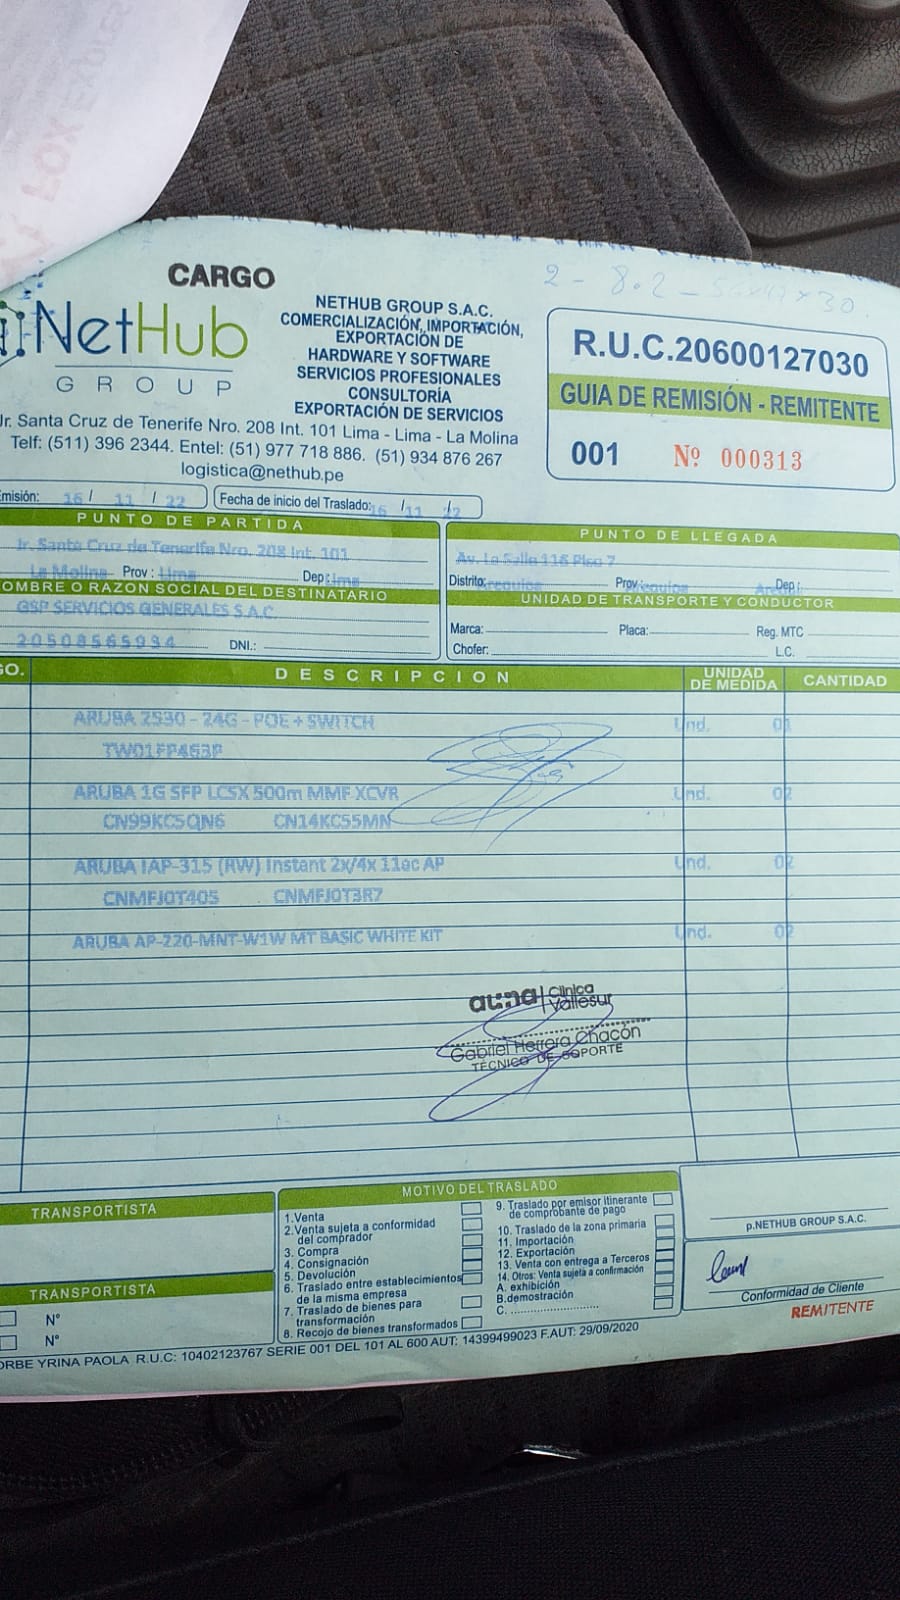 CARGO
NetHub
GROUP
NETHUB GROUP S.A.C.
COMERCIALIZACIÓN, IMPORTACIÓN,
EXPORTACIÓN DE
HARDWARE Y SOFTWARE
SERVICIOS PROFESIONALES
CONSULTORÍA
EXPORTACIÓN DE SERVICIOS
Jr. Santa Cruz de Tenerife Nro. 208 Int. 101 Lima - Lima - La Molina
Telf: (511) 396 2344. Entel: (51) 977 718 886. (51) 934 876 267
logistica@nethub.pe
2 - 8.2 -
R.U.C.20600127030
GUIA DE REMISIÓN - REMITENTE
001 Nº 000313
misión: 16 / 11 / 22 Fecha de inicio del Traslado: 16 / 11 / 22
PUNTO DE PARTIDA
Jr. Santa Cruz de Tenerife Nro. 208 Int. 101
La Molina Prov: Lima Dep: Lima
PUNTO DE LLEGADA
Av. La Salle 116 Piso 7
Distrito: Arequipa Prov: Arequipa Dep:
OMBRE O RAZON SOCIAL DEL DESTINATARIO
GSP SERVICIOS GENERALES S.A.C.
20508565934 DNI.:
UNIDAD DE TRANSPORTE Y CONDUCTOR
Marca: Placa: Reg. MTC
Chofer: L.C.
GO. DESCRIPCION UNIDAD DE MEDIDA CANTIDAD
ARUBA 2530 - 24G - POE + SWITCH Und. 01
TW01FP463P
ARUBA 1G SFP LCSX 500m MMF XCVR Und. 02
CN99KC5QN6 CN14KC55MN
ARUBA IAP-315 (RW) Instant 2x/4x 11ac AP Und. 02
CNMFJ0T405 CNMFJ0T3R7
ARUBA AP-220-MNT-W1W MT BASIC WHITE KIT Und. 02
auna | Clínica Vallesur
Gabriel Herrera Chacón
TÉCNICO DE SOPORTE
TRANSPORTISTA
TRANSPORTISTA
Nº
Nº
MOTIVO DEL TRASLADO
1.Venta
2.Venta sujeta a conformidad
del comprador
3. Compra
4. Consignación
5. Devolución
6. Traslado entre establecimientos
de la misma empresa
7. Traslado de bienes para
transformación
8. Recojo de bienes transformados
9. Traslado por emisor itinerante
de comprobante de pago
10. Traslado de la zona primaria
11. Importación
12. Exportación
13. Venta con entrega a Terceros
14. Otros: Venta sujeta a confirmación
A. exhibición
B.demostración
C.
p.NETHUB GROUP S.A.C.
Conformidad de Cliente
REMITENTE
ORBE YRINA PAOLA R.U.C: 10402123767 SERIE 001 DEL 101 AL 600 AUT: 14399499023 F.AUT: 29/09/2020